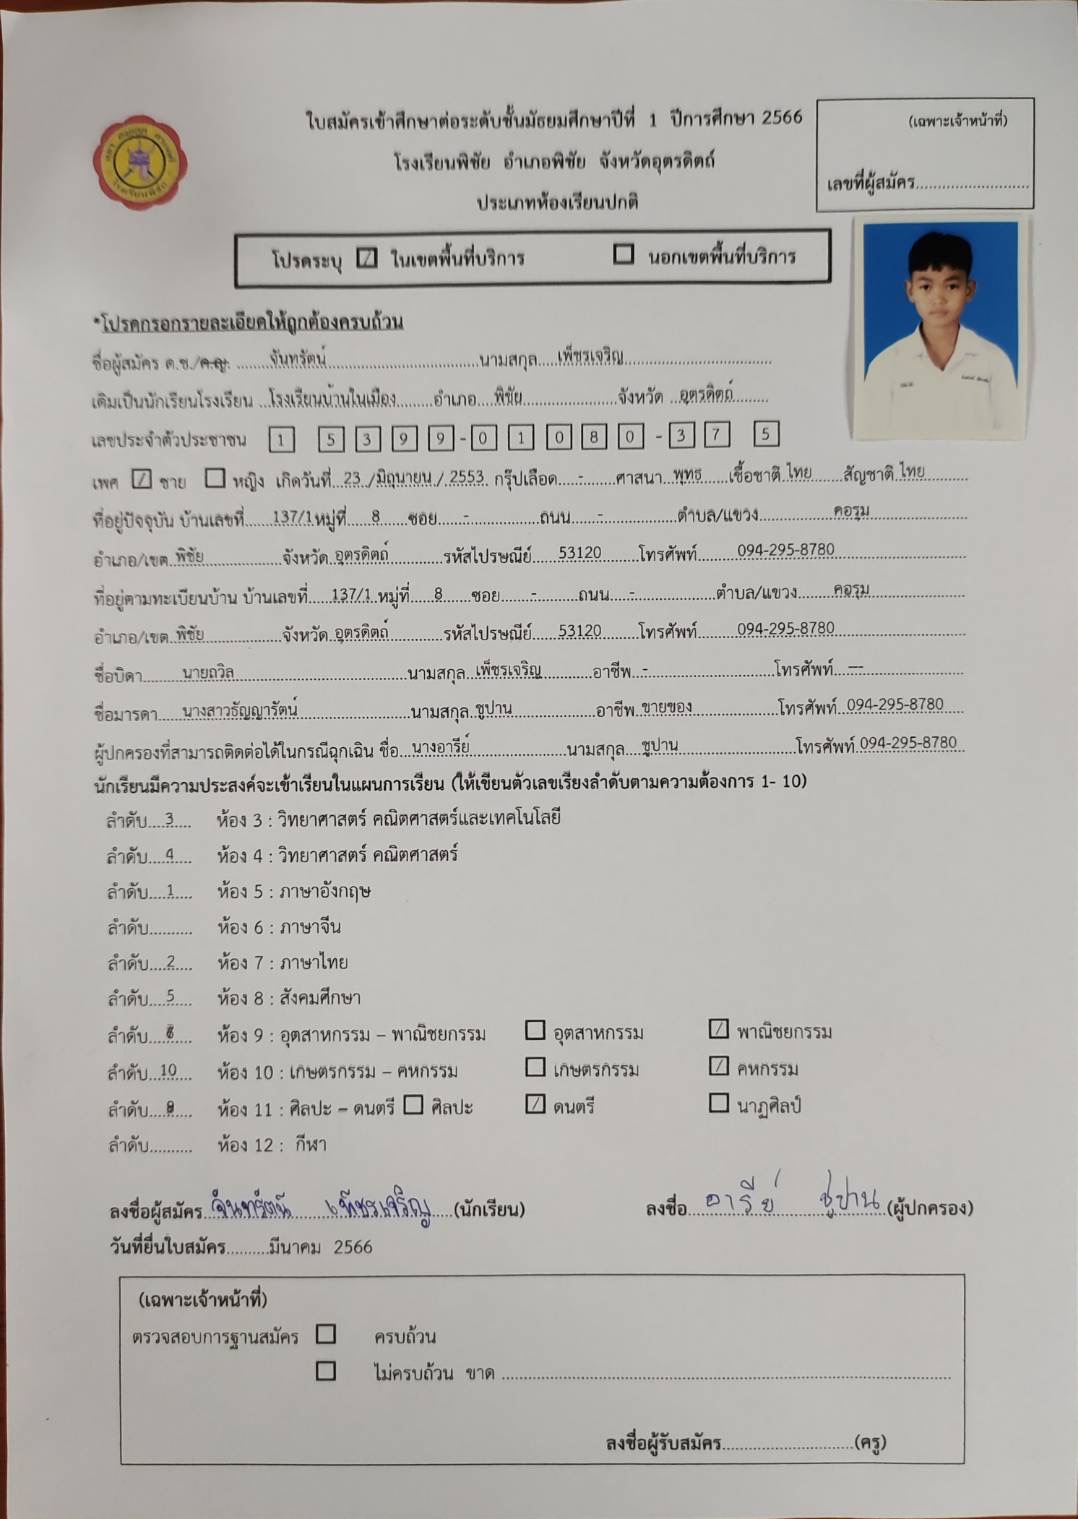 ใบสมัครเข้าศึกษาต่อระดับชั้นมัธยมศึกษาปีที่ 1 ปีการศึกษา 2566
โรงเรียนพิชัย อำเภอพิชัย จังหวัดอุตรดิตถ์
ประเภทห้องเรียนปกติ
(เฉพาะเจ้าหน้าที่)
เลขที่ผู้สมัคร..........................
โปรดระบุ ☑ ในเขตพื้นที่บริการ ☐ นอกเขตพื้นที่บริการ
*โปรดกรอกรายละเอียดให้ถูกต้องครบถ้วน
ชื่อผู้สมัคร ด.ช./ด.ญ. จันทรัตน์ นามสกุล เพ็ชรเจริญ
เดิมเป็นนักเรียนโรงเรียน โรงเรียนบ้านในเมือง อำเภอ พิชัย จังหวัด อุตรดิตถ์
เลขประจำตัวประชาชน 1 5 3 9 9 - 0 1 0 8 0 - 3 7 5
เพศ ☑ ชาย ☐ หญิง เกิดวันที่ 23 /มิถุนายน / 2553 กรุ๊ปเลือด - ศาสนา พุทธ เชื้อชาติ ไทย สัญชาติ ไทย
ที่อยู่ปัจจุบัน บ้านเลขที่ 137/1 หมู่ที่ 8 ซอย - ถนน - ตำบล/แขวง คอรุม
อำเภอ/เขต พิชัย จังหวัด อุตรดิตถ์ รหัสไปรษณีย์ 53120 โทรศัพท์ 094-295-8780
ที่อยู่ตามทะเบียนบ้าน บ้านเลขที่ 137/1 หมู่ที่ 8 ซอย - ถนน - ตำบล/แขวง คอรุม
อำเภอ/เขต พิชัย จังหวัด อุตรดิตถ์ รหัสไปรษณีย์ 53120 โทรศัพท์ 094-295-8780
ชื่อบิดา นายถวิล นามสกุล เพ็ชรเจริญ อาชีพ - โทรศัพท์ ---
ชื่อมารดา นางสาวธัญญารัตน์ นามสกุล ชูปาน อาชีพ ขายของ โทรศัพท์ 094-295-8780
ผู้ปกครองที่สามารถติดต่อได้ในกรณีฉุกเฉิน ชื่อ นางอารีย์ นามสกุล ชูปาน โทรศัพท์ 094-295-8780
นักเรียนมีความประสงค์จะเข้าเรียนในแผนการเรียน (ให้เขียนตัวเลขเรียงลำดับตามความต้องการ 1- 10)
ลำดับ 3 ห้อง 3 : วิทยาศาสตร์ คณิตศาสตร์และเทคโนโลยี
ลำดับ 4 ห้อง 4 : วิทยาศาสตร์ คณิตศาสตร์
ลำดับ 1 ห้อง 5 : ภาษาอังกฤษ
ลำดับ.......... ห้อง 6 : ภาษาจีน
ลำดับ 2 ห้อง 7 : ภาษาไทย
ลำดับ 5 ห้อง 8 : สังคมศึกษา
ลำดับ ห้อง 9 : อุตสาหกรรม – พาณิชยกรรม ☐ อุตสาหกรรม ☑ พาณิชยกรรม
ลำดับ 10 ห้อง 10 : เกษตรกรรม – คหกรรม ☐ เกษตรกรรม ☑ คหกรรม
ลำดับ ห้อง 11 : ศิลปะ – ดนตรี ☐ ศิลปะ ☑ ดนตรี ☐ นาฏศิลป์
ลำดับ.......... ห้อง 12 : กีฬา
ลงชื่อผู้สมัคร จันทรัตน์ เพ็ชรเจริญ (นักเรียน) ลงชื่อ อารีย์ ชูปาน (ผู้ปกครอง)
วันที่ยื่นใบสมัคร..........มีนาคม 2566
(เฉพาะเจ้าหน้าที่)
ตรวจสอบการฐานสมัคร ☐ ครบถ้วน
☐ ไม่ครบถ้วน ขาด ..........
ลงชื่อผู้รับสมัคร..............................(ครู)